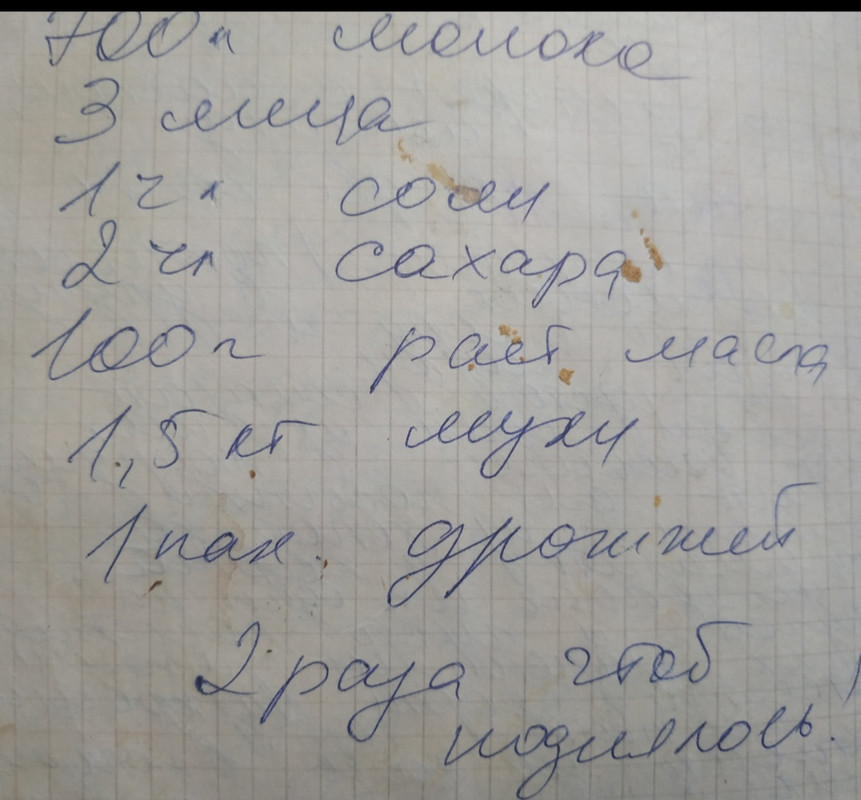 700г молока
3 яица
1 чл соли
2 чл сахара
100г раст масла
1,5 кг муки
1 пак. дрожжей
2 раза чтоб
поднялось!